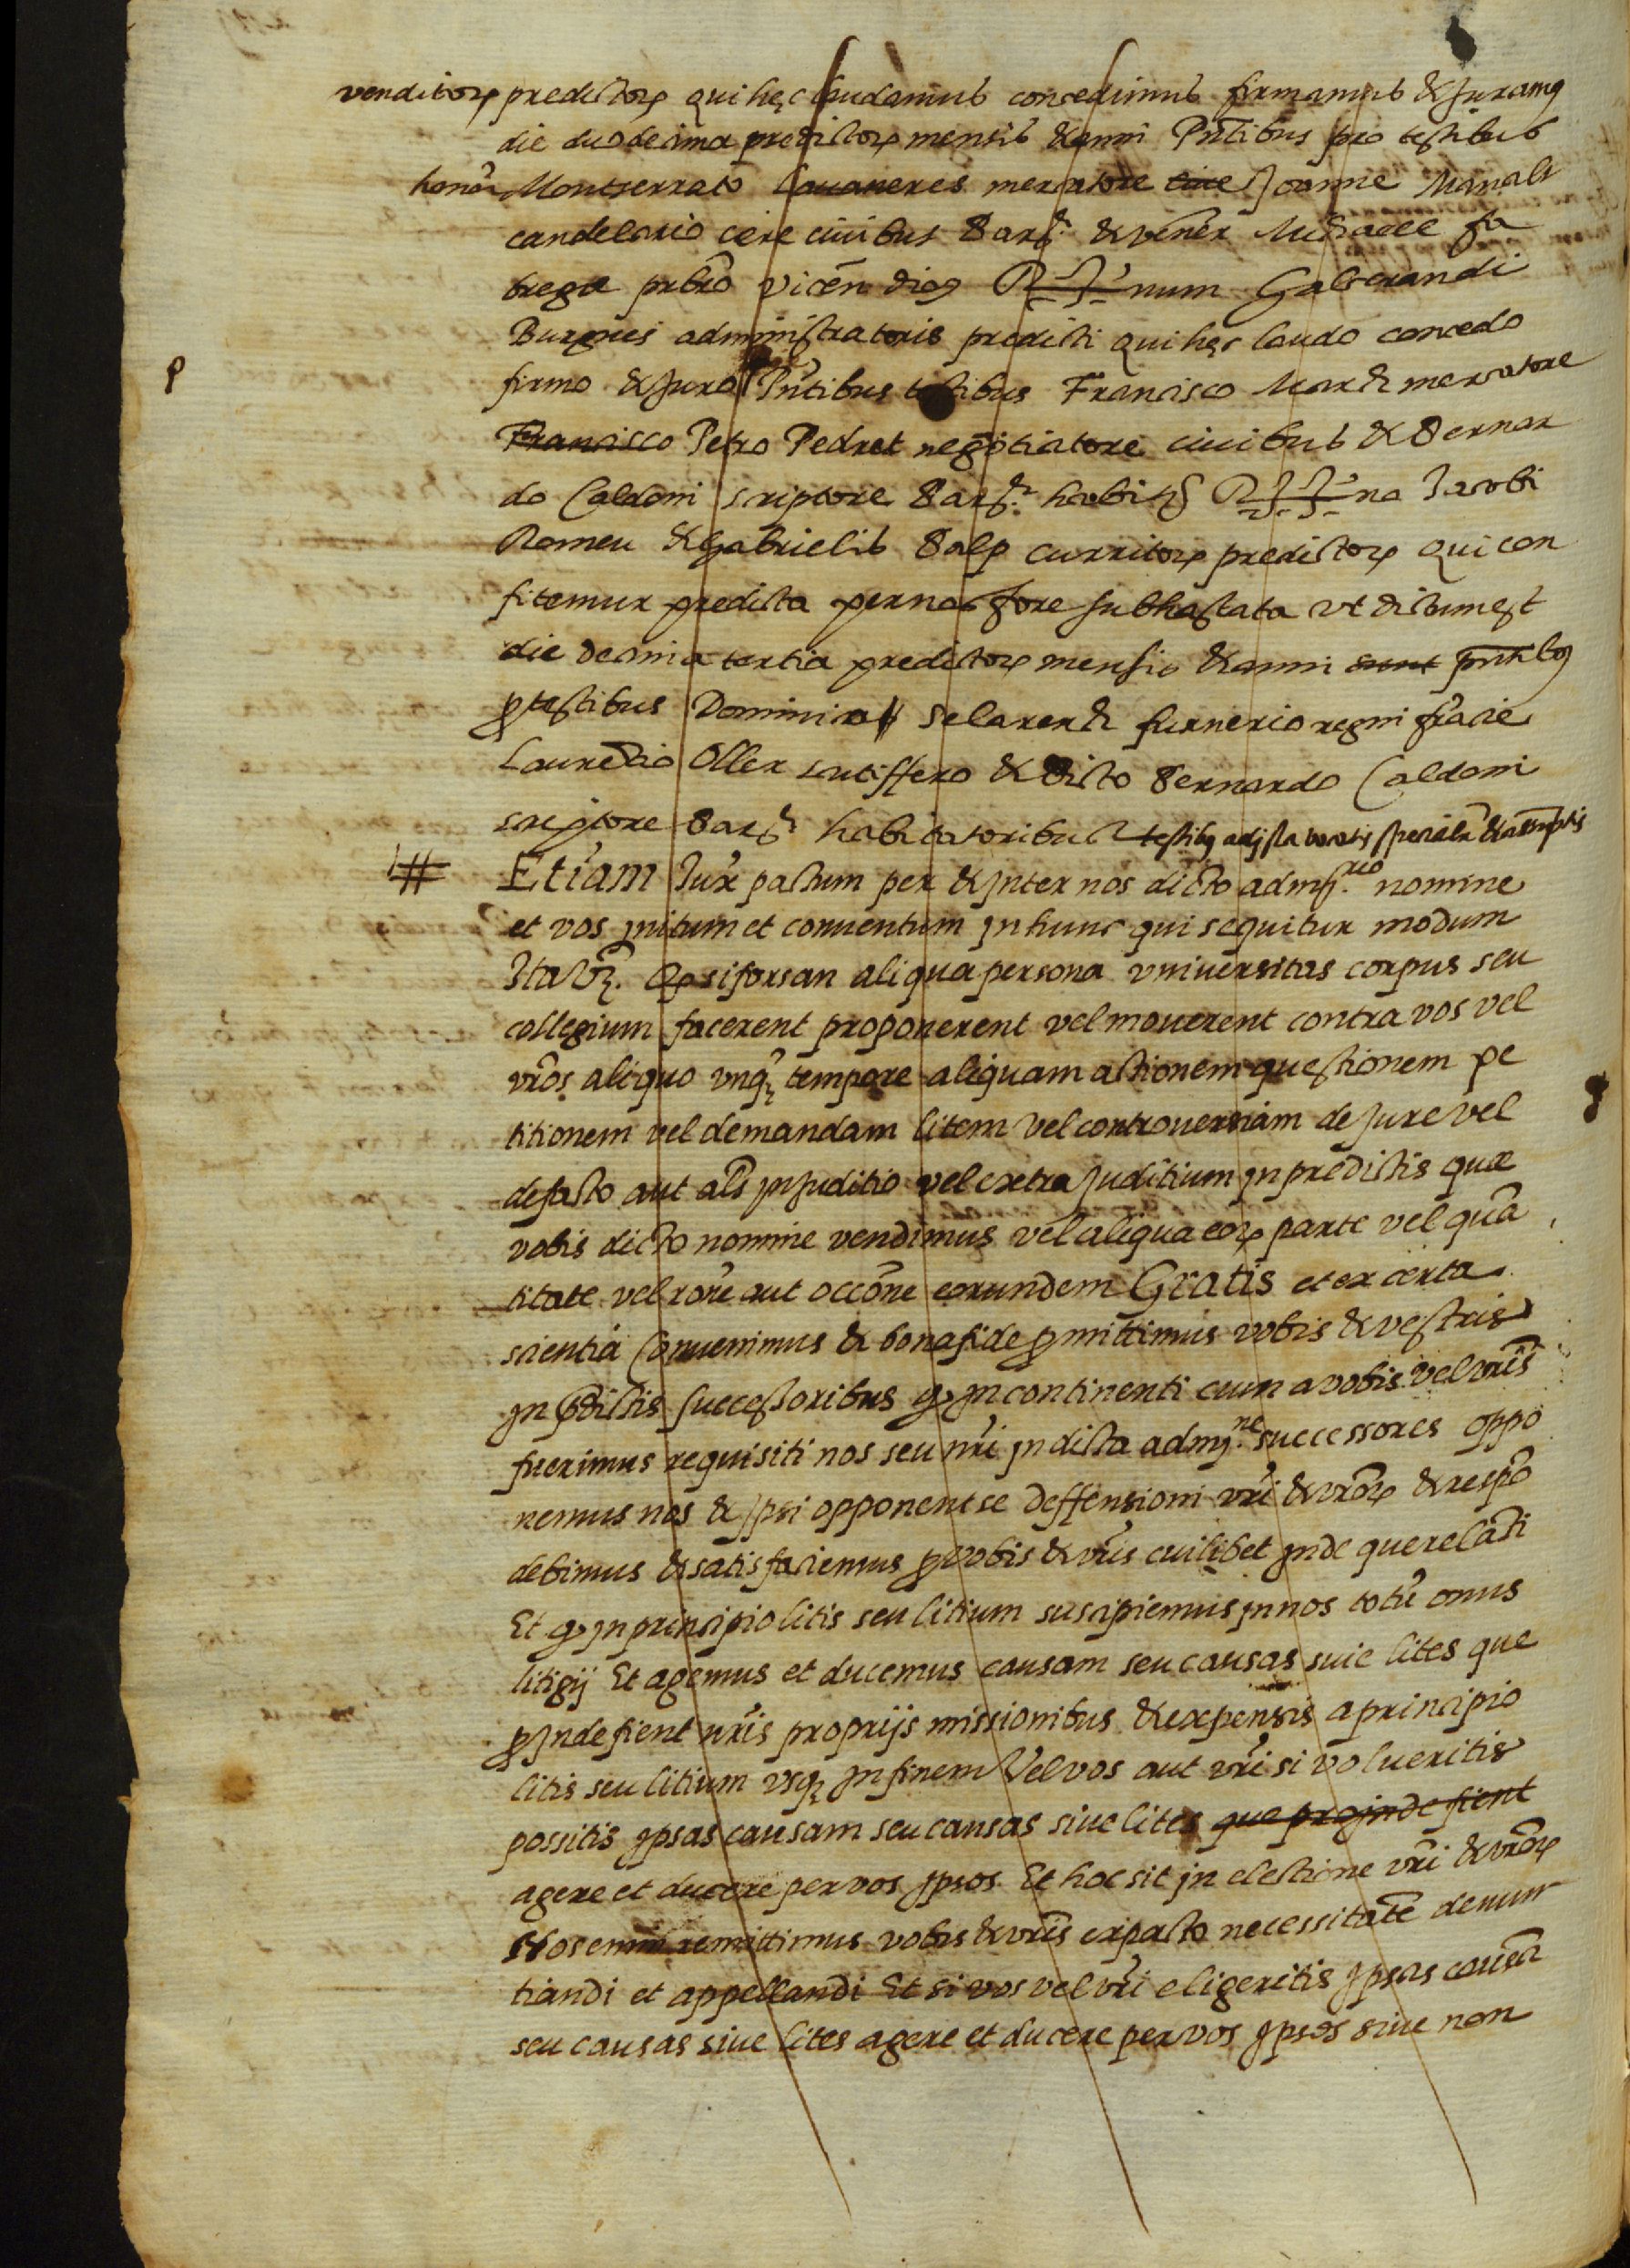 venditorꝝ predictorꝝ qui hęc laudamus concedimus firmamus & Juramꝰ
die duodecima predictorꝝ mensis & anni Pñtibus pro testibus
honor̃ Montserrato Cauaneres mercatore ciue Joanne Manalt
candelario cere ciuibus Barᷤ. & vener̃ Michaele fa
brega prb̃ro vicen̄ dioꝰ num Galcerandi
Burgues administratoris predicti qui hęc laudo concedo
firmo & Juro Pñtibus testibus Francisco Marti mercatore
Francisco Petro Pedret negotiatore ciuibus & Bernar
do Caldoni scriptore Barᷤ. habitᷤ na Jacobi
Romeu & Gabrielis Balp curritorꝝ predictorꝝ qui con
fitemur predicta per nos fore subhastata vt dictum est
die decima tertia predictorꝝ mensis & anni sunt pñtibꝰ
ꝓ testibus Dominico Selarenti furnerio regni frãcie
Laurẽtio Oller sutiffero & dicto Bernardo Caldoni
scriptore Barᷤ habitatoribus testibꝰ ad ista vocatis specialr̃ & assumptis
Etiam Jur̃ pactum per & Jnter nos dicto admj.rio nomine
et vos jnitum et conuentum jn hunc qui sequitur modum
Ita vꝫ. ꝙ si forsan aliqua persona vniuersitas corpus seu
collegium facerent proponerent vel mouerent contra vos vel
vr̃os aliquo vnqꝫ tempore aliquam actionem questionem pe
titionem vel demandam litem vel controuersiam de jure vel
de facto aut als̃ jn juditio vel extra juditium jn predictis quæ
vobis dicto nomine vendimus vel aliqua eorꝝ parte vel quã
titate vel rõne aut occõne eorundem Gratis et ex certa
scientia Conuenimus & bona fide ꝓmittimus vobis & vestris
jn p̃dictis successoribus ꝙ jncontinenti cum a vobis vel vr̃is
fuerimus requisiti nos seu nr̃i jn dicta admj.ne successores oppo
nemus nos & jpsi opponent se deffensioni vr̃i & vr̃orꝝ & respõ
debimus & satisfaciemus ꝓ vobis & vr̃is cuilibet jnde querelãti
Et ꝙ jn principio litis seu litium suscipiemus jn nos totũ onus
litigij Et agemus et ducemus causam seu causas siue lites que
ꝓ Jnde fient nr̃is proprijs missionibus & expensis a principio
litis seu litium vsqꝫ jn finem Vel vos aut vr̃i si volueritis
possitis jpsas causam seu causas siue lites que projnde fient
agere et ducere per vos jpsos Et hoc sit jn electione vr̃i & vr̃orꝝ
Nos enim remittimus vobis & vr̃is ex pacto necessitatẽ denun
tiandi et appellandi Et si vos vel vr̃i eligeritis jpsas causã
seu causas siue lites agere et ducere per vos jpsos siue non